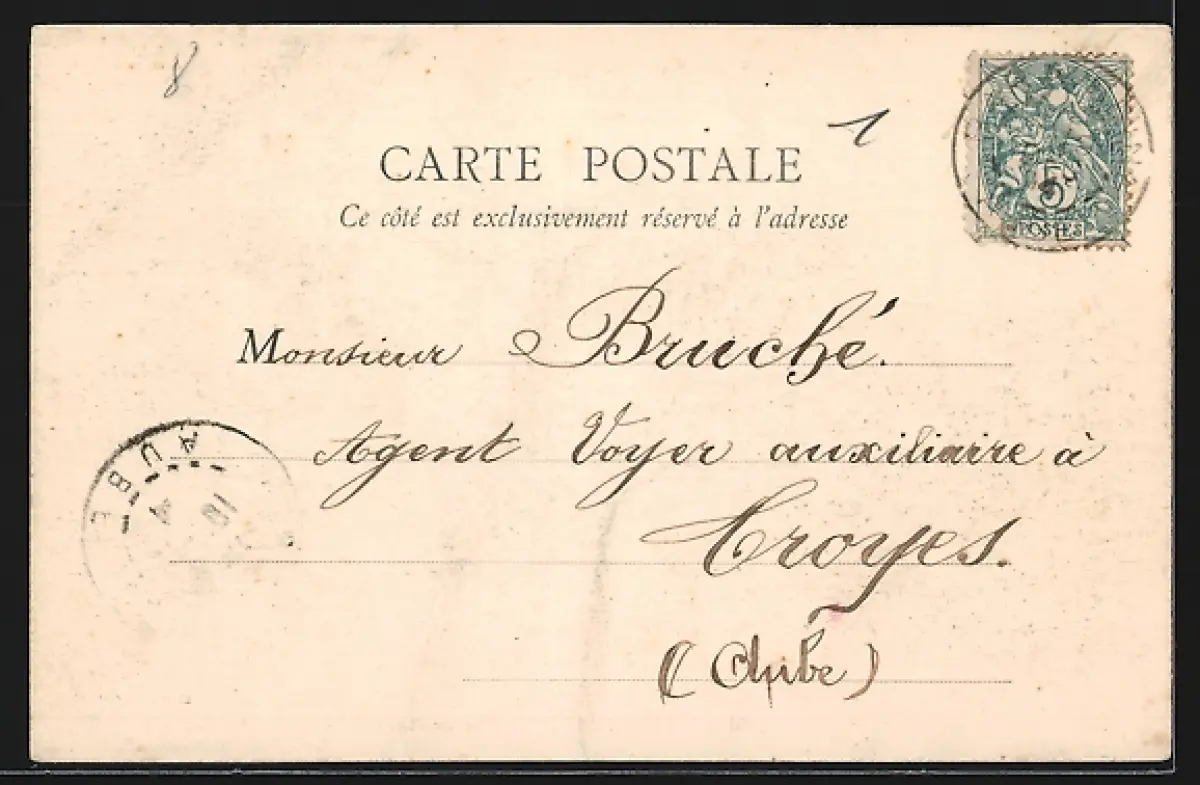 8
1
5
POSTES
CARTE POSTALE
Ce côté est exclusivement réservé à l'adresse
Monsieur Bruché.
Agent Voyer auxiliaire à
Troyes.
(Aube)
AUBE